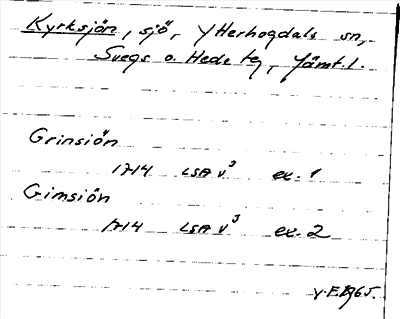 Kyrksjön, sjö, Ytterhogdals sn,
Svegs o. Hede tg, Jämt.l.
Grinsiön
1714 LSA V³ ex. 1
Gimsiön
1714 LSA V³ ex. 2
V.E. 1965.